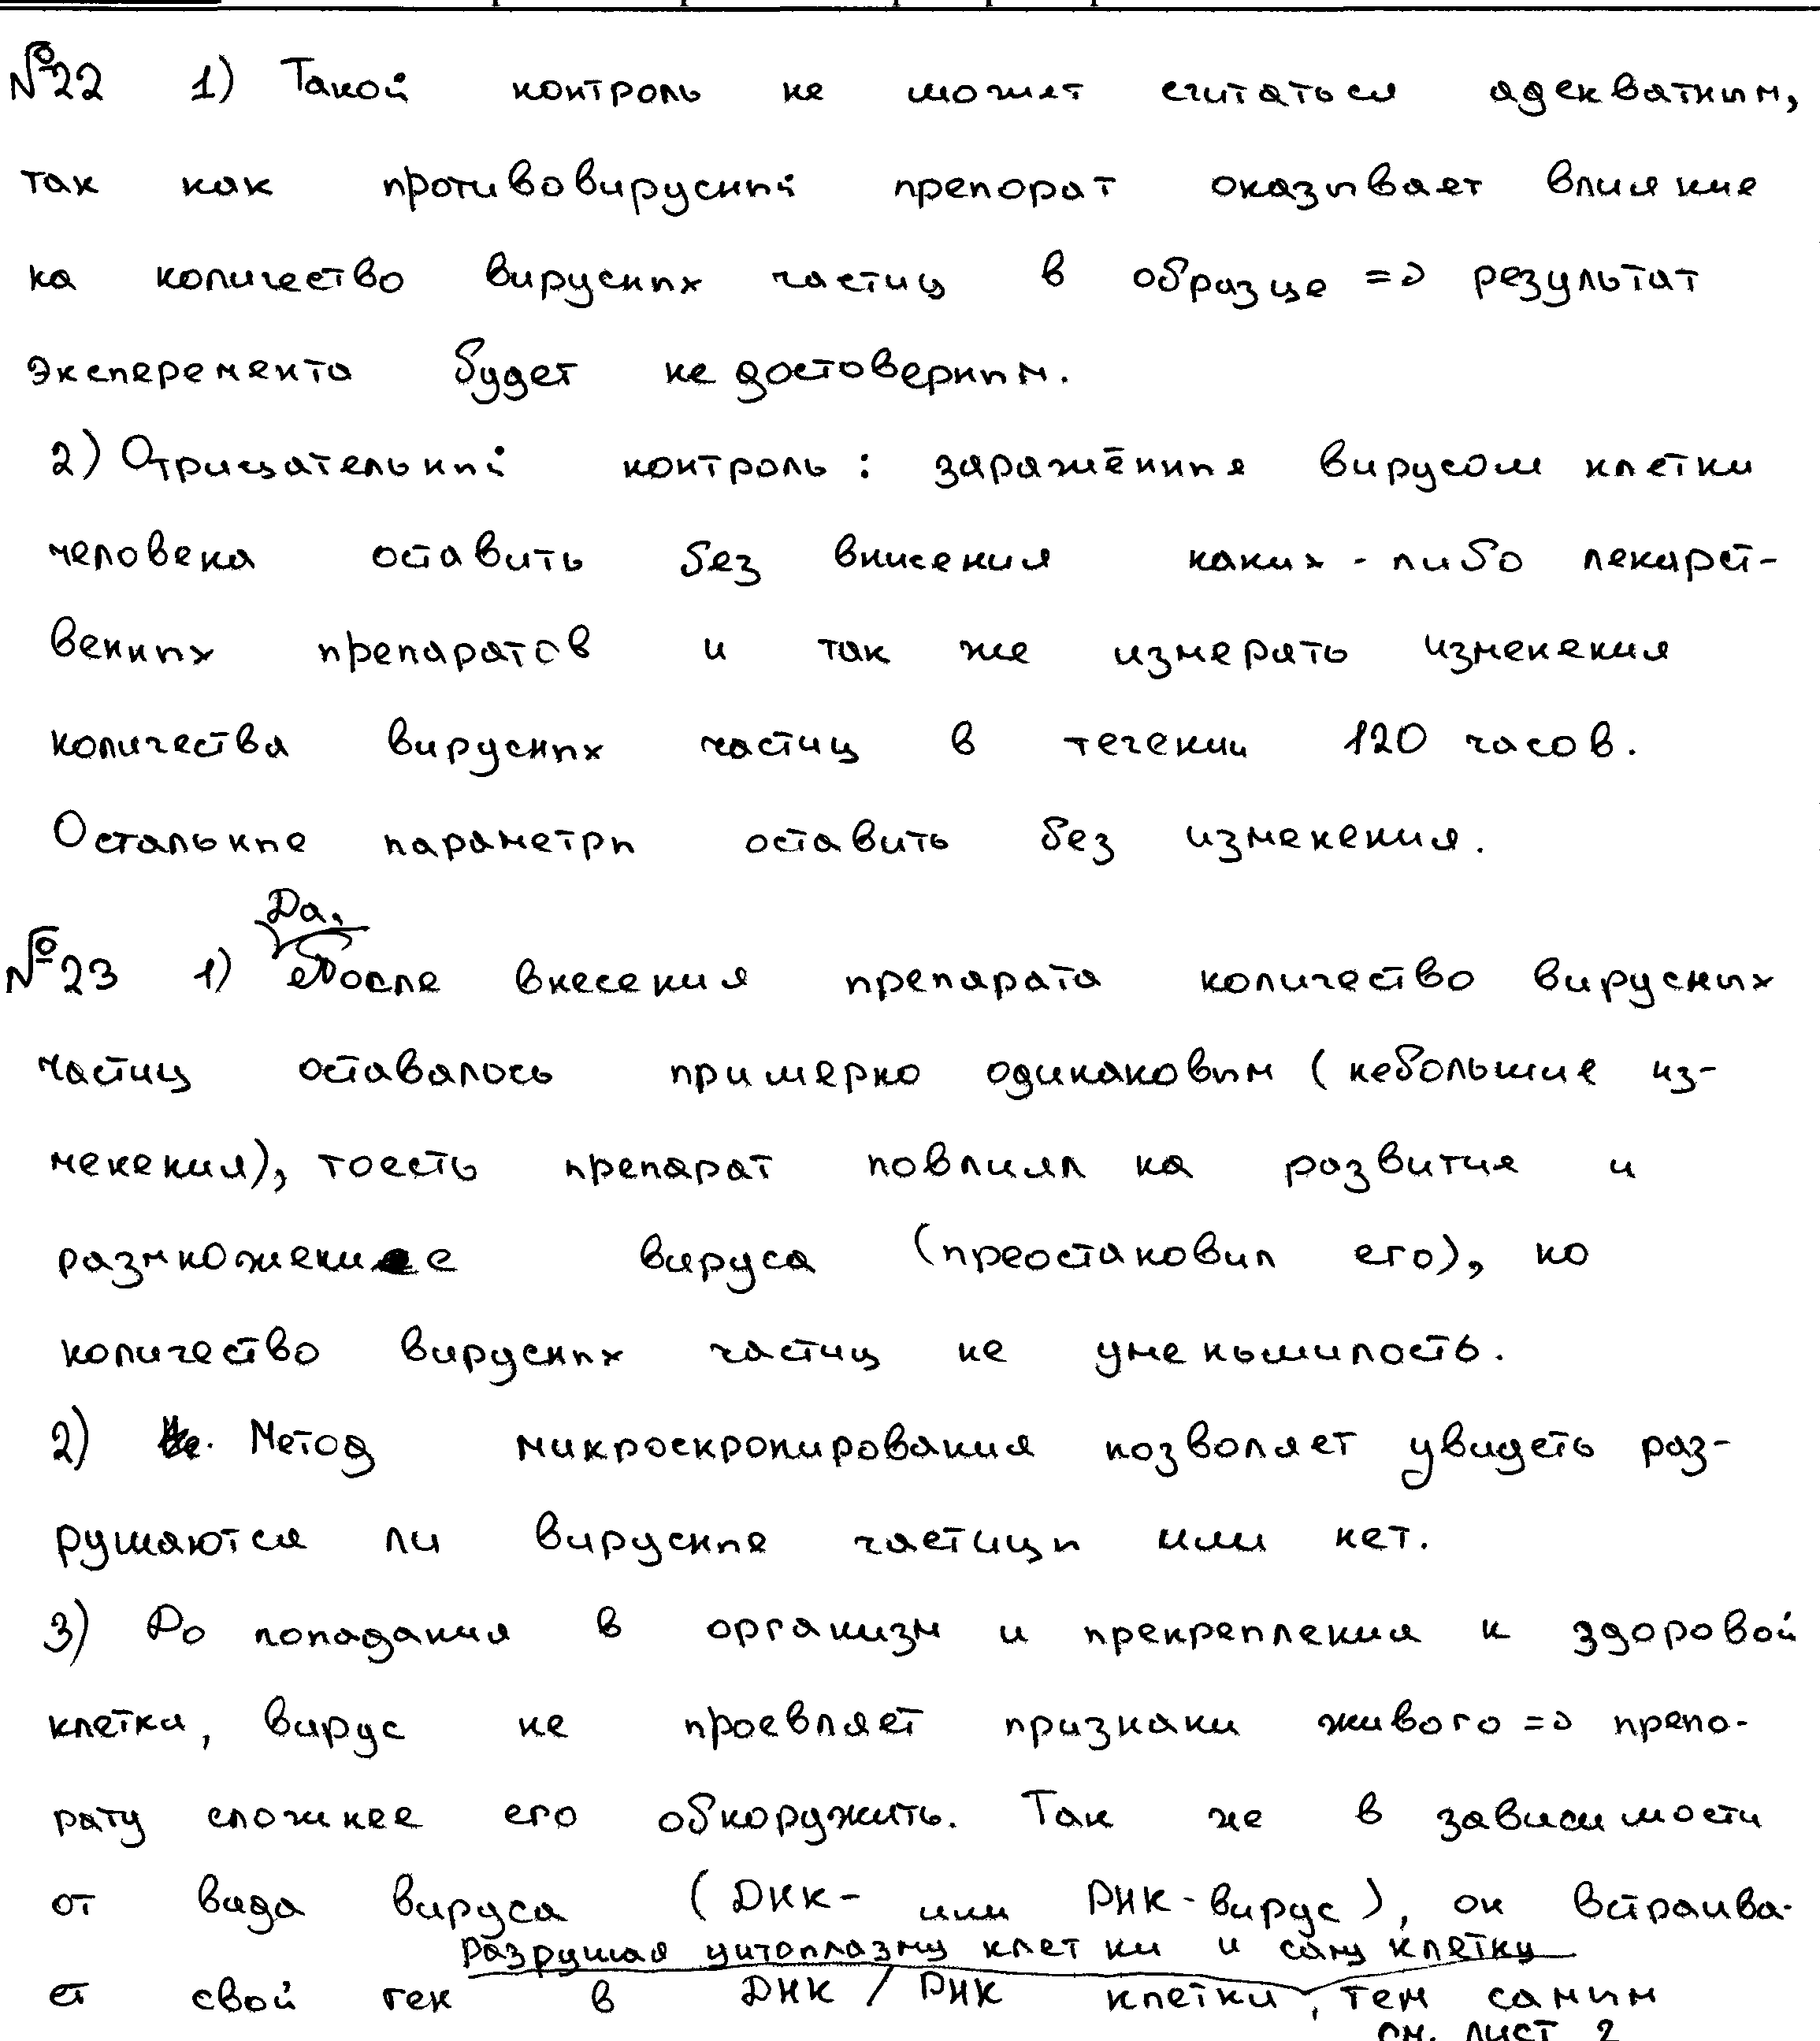 №22 1) Такой контроль не может считаться адекватным,
так как противовирусный препорат оказывает влияние
на количество вирусных частиц в образце => результат
эксперемента будет не достоверным.
2) Отрицательный контроль: заражённые вирусом клетки
человека оставить без внисения каких-либо лекарст-
венных препаратов и так же измерять изменения
количества вирусных частиц в течении 120 часов.
Остальные параметры оставить без изменения.
Да.
№23 1) После внесения препарата количество вирусных
частиц оставалось примерно одинаковым (небольшие из-
менения), тоесть препарат повлиял на развития и
размножение вируса (преостановил его), но
количество вирусных частиц не уменьшилость.
2) Метод микроскропирования позволяет увидеть раз-
рушаются ли вирусные частицы или нет.
3) До попадания в организм и прекрепления к здоровой
клетки, вирус не проевляет признаки живого => препо-
рату сложнее его обноружить. Так же в зависимости
от вида вируса (ДНК- или РНК-вирус), он встраива-
разрушая цитоплазму клетки и саму клетку
ет свой ген в ДНК / РНК клетки, тем самым
см. лист 2